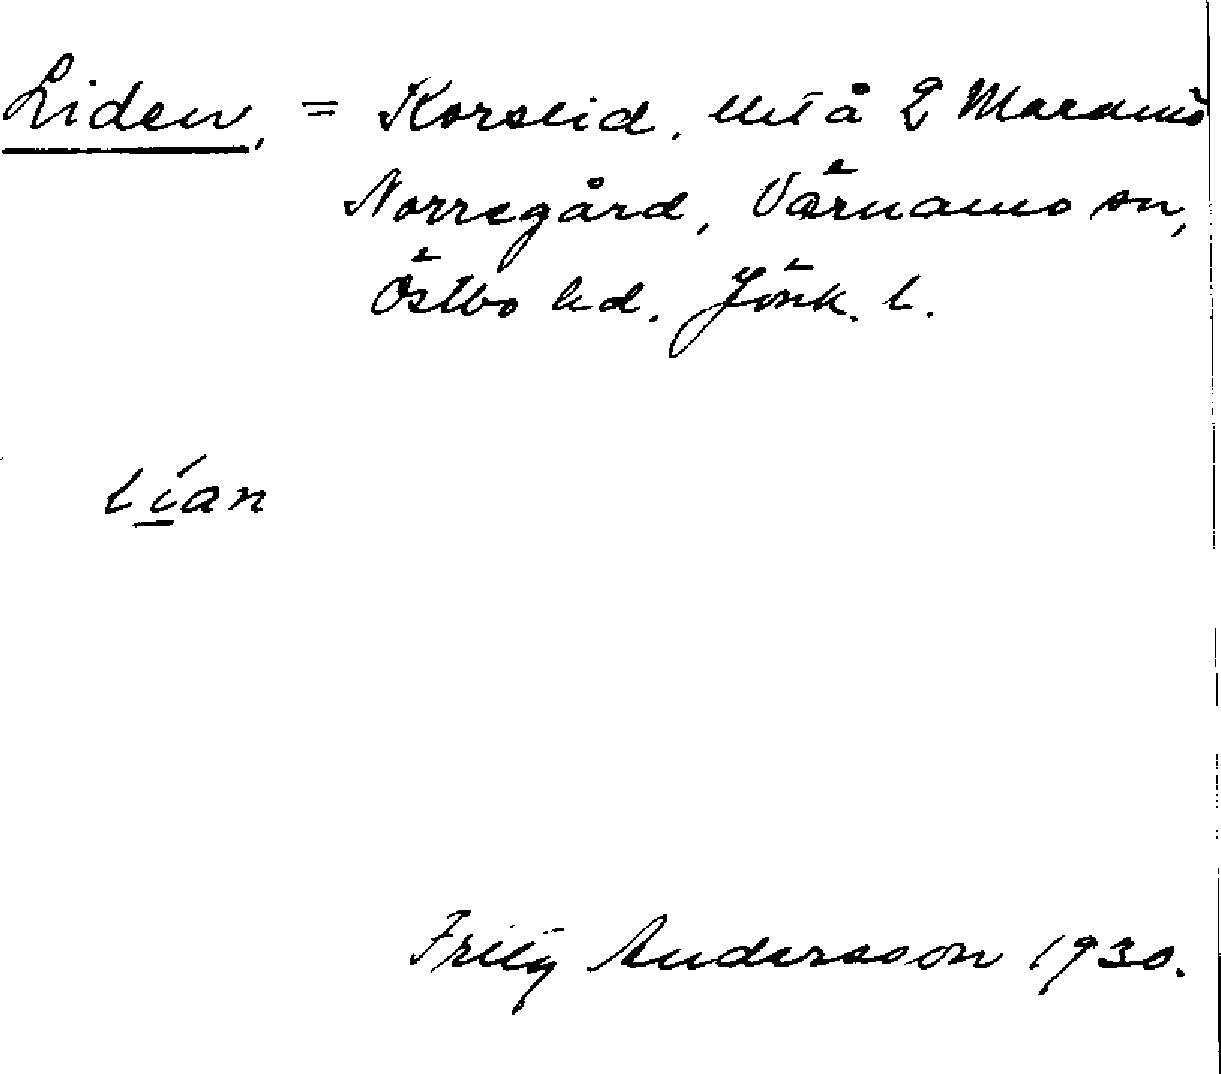 Liden, = Korslid, lht å 2 Maramö
Norregård, Värnamo sn,
Östbo hd. Jönk. l.
lían
Fritz Andersson 1930.